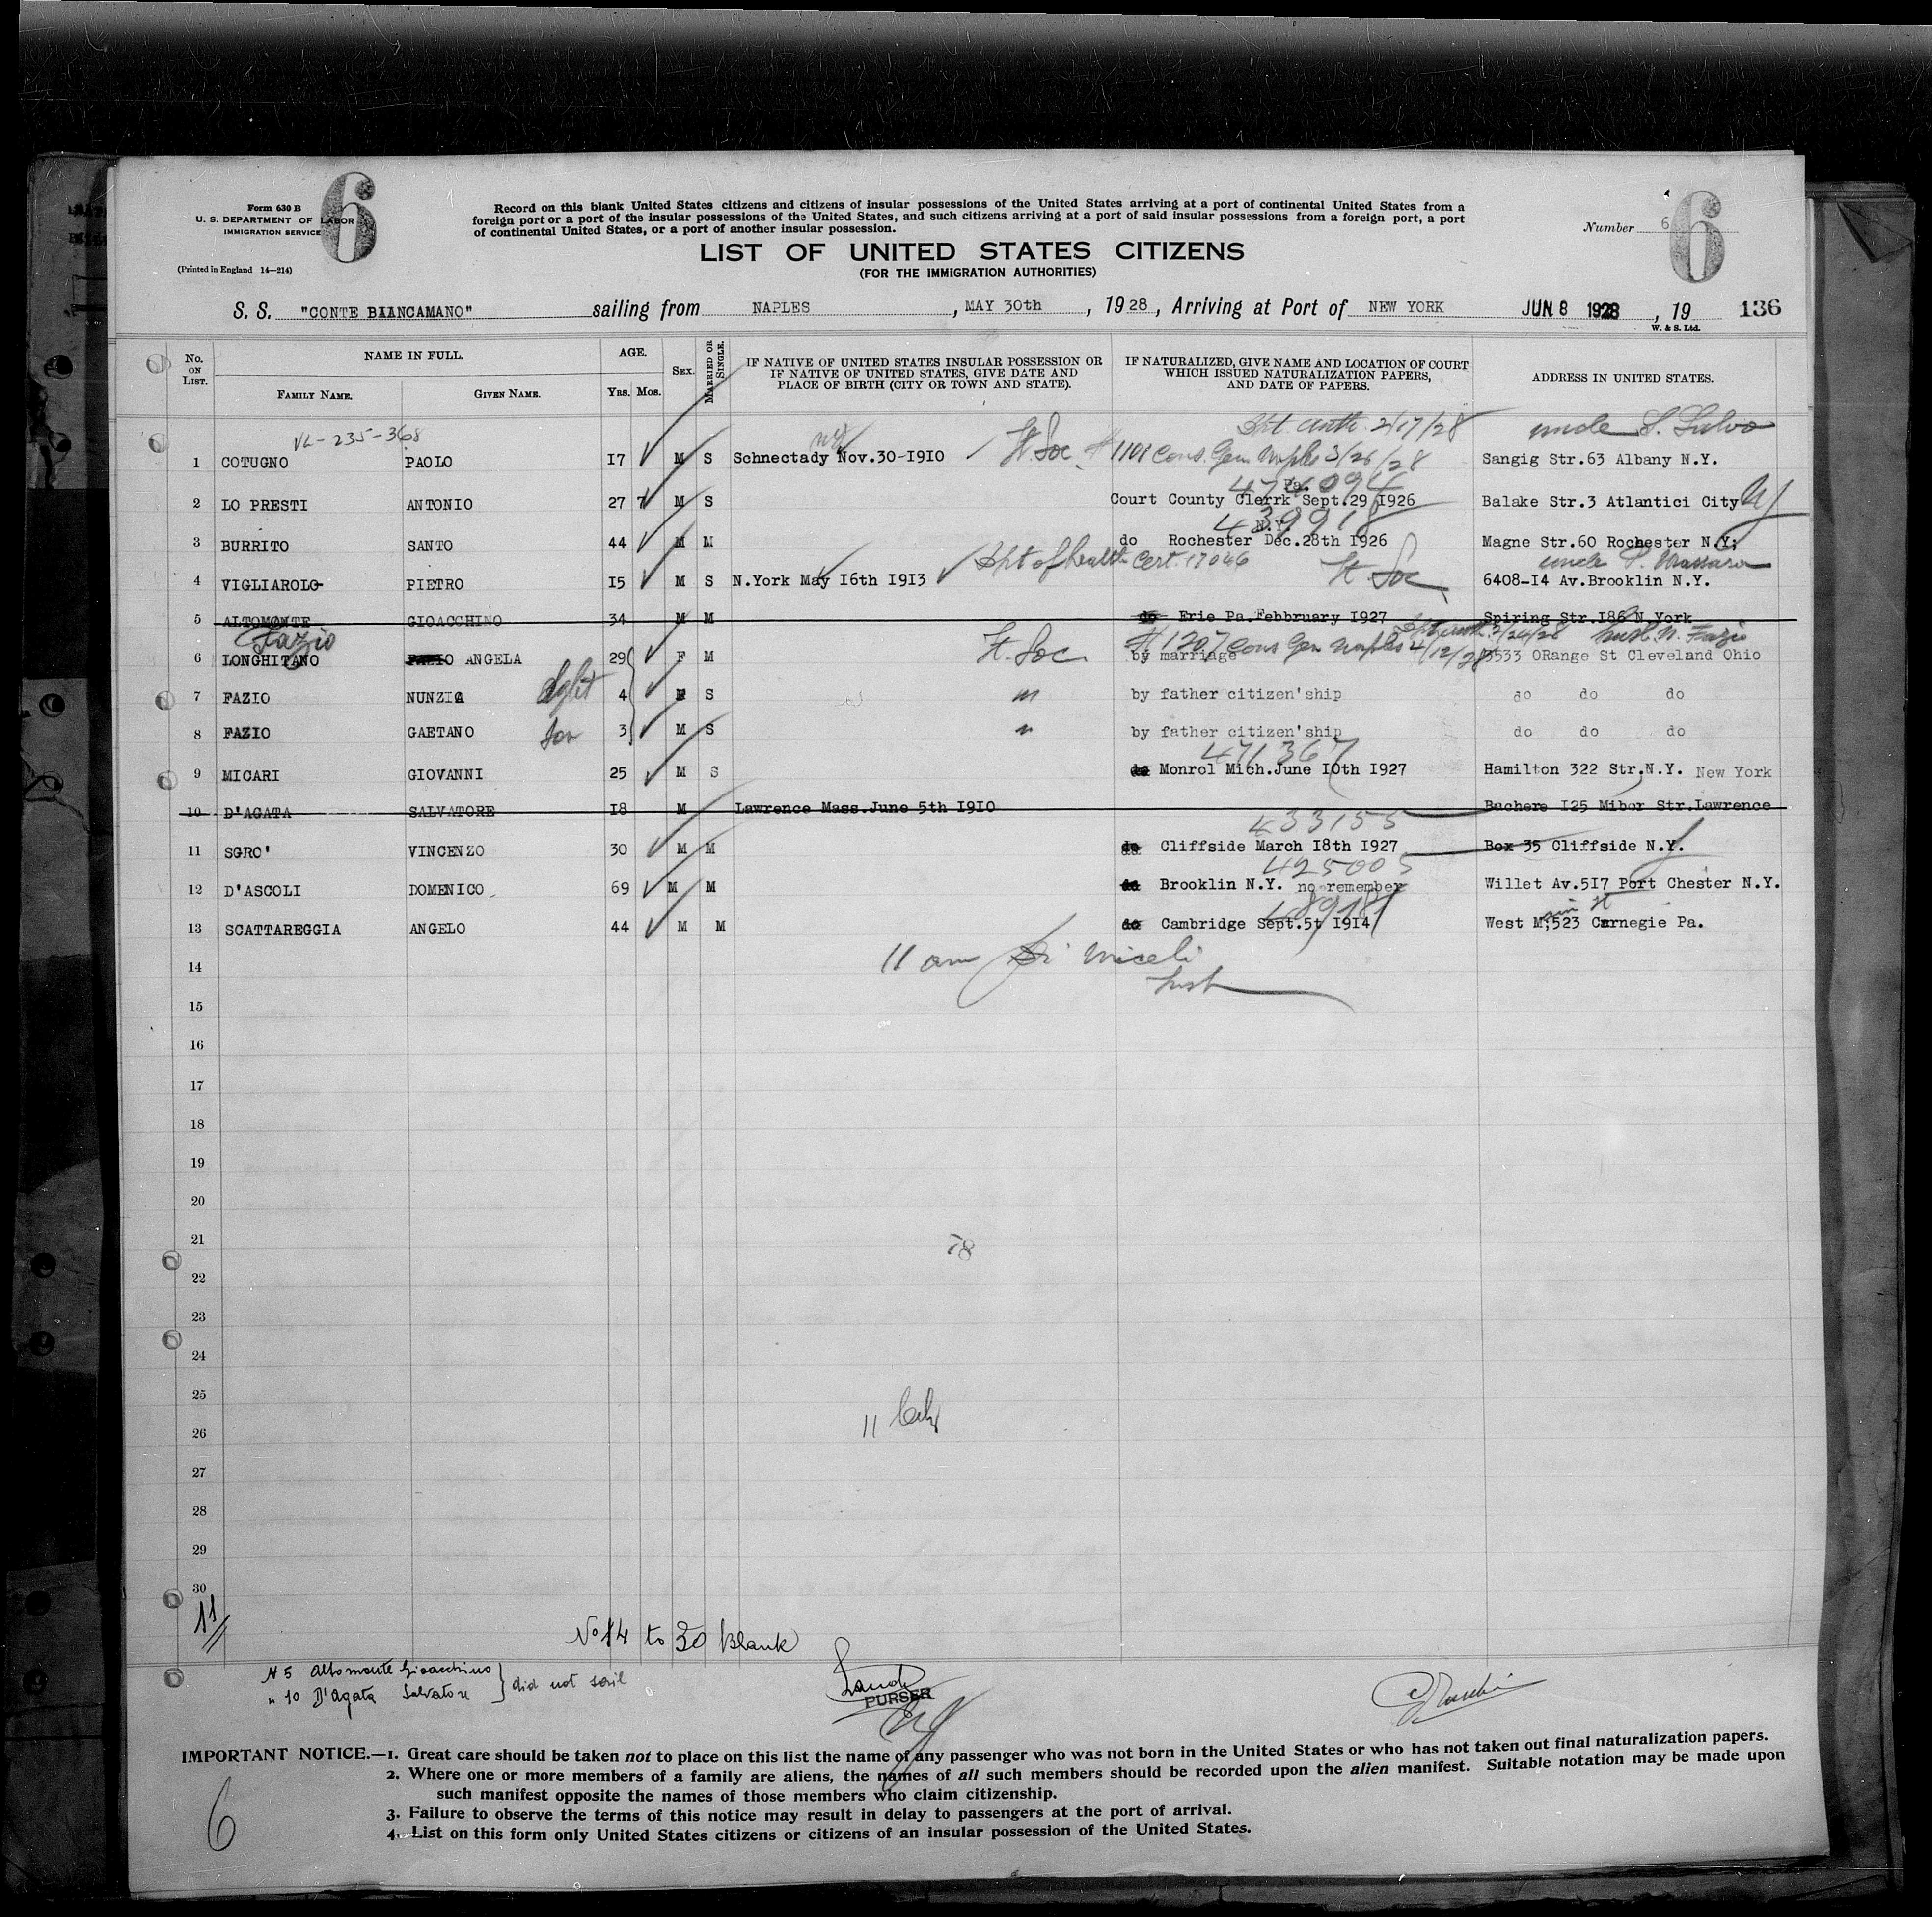 Form 630 B
U. S. DEPARTMENT OF LABOR
IMMIGRATION SERVICE
(Printed in England 14—214)
6
Record on this blank United States citizens and citizens of insular possessions of the United States arriving at a port of continental United States from a
foreign port or a port of the insular possessions of the United States, and such citizens arriving at a port of said insular possessions from a foreign port, a port
of continental United States, or a port of another insular possession.
LIST OF UNITED STATES CITIZENS
(FOR THE IMMIGRATION AUTHORITIES)
Number 6
6
S. S. "CONTE BIANCAMANO" sailing from NAPLES, MAY 30th, 1928, Arriving at Port of NEW YORK JUN 8 1928, 19 136
W. & S. Ltd.
No. ON LIST.
NAME IN FULL.
FAMILY NAME. GIVEN NAME.
AGE.
YRS. MOS.
SEX.
MARRIED OR SINGLE.
IF NATIVE OF UNITED STATES INSULAR POSSESSION OR
IF NATIVE OF UNITED STATES, GIVE DATE AND
PLACE OF BIRTH (CITY OR TOWN AND STATE).
IF NATURALIZED, GIVE NAME AND LOCATION OF COURT
WHICH ISSUED NATURALIZATION PAPERS,
AND DATE OF PAPERS.
ADDRESS IN UNITED STATES.
VL-235-368 NY 2/17/28 uncle S. Salvo
1 COTUGNO PAOLO 17 M S Schnectady Nov.30-1910 St. Soc. #1101 Cons. Gen Naples 3/26/28 Sangig Str.63 Albany N.Y.
Pa.
2 LO PRESTI ANTONIO 27 7 M S Court County Clerrk Sept.29 1926 Balake Str.3 Atlantici City NJ
439918
N.Y.
3 BURRITO SANTO 44 M M do Rochester Dec.28th 1926 Magne Str.60 Rochester N.Y;
Dpt of health Cert. 17046 St. Soc uncle P. Massara
4 VIGLIAROLO PIETRO 15 M S N.York May 16th 1913 6408-14 Av.Brooklin N.Y.
5 ALTOMONTE GIOACCHINO 34 M M do Erie Pa.Febbruary 1927 Spiring Str.186 N.York
Fazio St. Soc. #1207 Cons Gen Naples 4/12/28 3/24/28 husb. N. Fazio
6 LONGHITANO FAZIO ANGELA 29 F M by marriage 3533 ORange St Cleveland Ohio
7 FAZIO NUNZIA dght 4 F S " by father citizen'ship do do do
8 FAZIO GAETANO son 3 M S " by father citizen'ship do do do
471367
9 MICARI GIOVANNI 25 M S do Monrol Mich.June 10th 1927 Hamilton 322 Str.N.Y. New York
10 D'AGATA SALVATORE 18 M Lawrence Mass.June 5th 1910 Bachere 125 Mibor Str.Lawrence
433155
11 SGRO' VINCENZO 30 M M do Cliffside March 18th 1927 Box 35 Cliffside N.Y. J
425005
12 D'ASCOLI DOMENICO 69 M M do Brooklin N.Y. no remember Willet Av.517 Port Chester N.Y.
13 SCATTAREGGIA ANGELO 44 M M do Cambridge Sept.5t 1914 West M;523 Carnegie Pa.
14
11 am Miceli
Insp
15
16
17
18
19
20
21
78
22
23
24
25
26
11
27
28
29
30
11
No 14 to 30 blank
N 5 Altomonte Gioacchino
" 10 D'Agata Salvatore } did not sail
PURSER
IMPORTANT NOTICE.—1. Great care should be taken not to place on this list the name of any passenger who was not born in the United States or who has not taken out final naturalization papers.
2. Where one or more members of a family are aliens, the names of all such members should be recorded upon the alien manifest. Suitable notation may be made upon
such manifest opposite the names of those members who claim citizenship.
3. Failure to observe the terms of this notice may result in delay to passengers at the port of arrival.
4. List on this form only United States citizens or citizens of an insular possession of the United States.
6